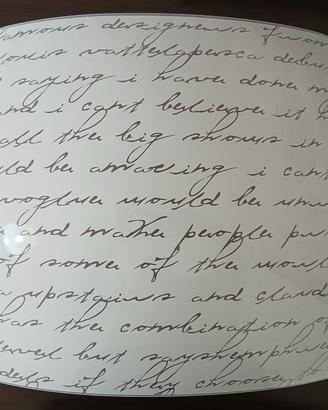 famous designers from
louis vattelapesca debu
saying i have done m
and i cant believe it h
all the big shows in
uld be amazing i cant
voglue would be unu
and make people pu
of some of the worl
upstairs and claud
has the combination o
level but says
dels if they choose to